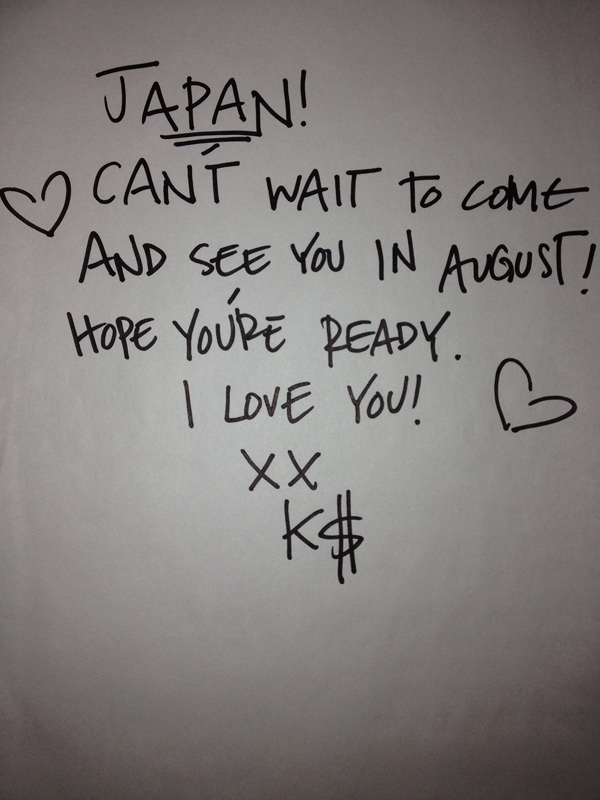 JAPAN!
CAN'T WAIT TO COME
AND SEE YOU IN AUGUST!
HOPE YOU'RE READY.
I LOVE YOU!
XX
K$